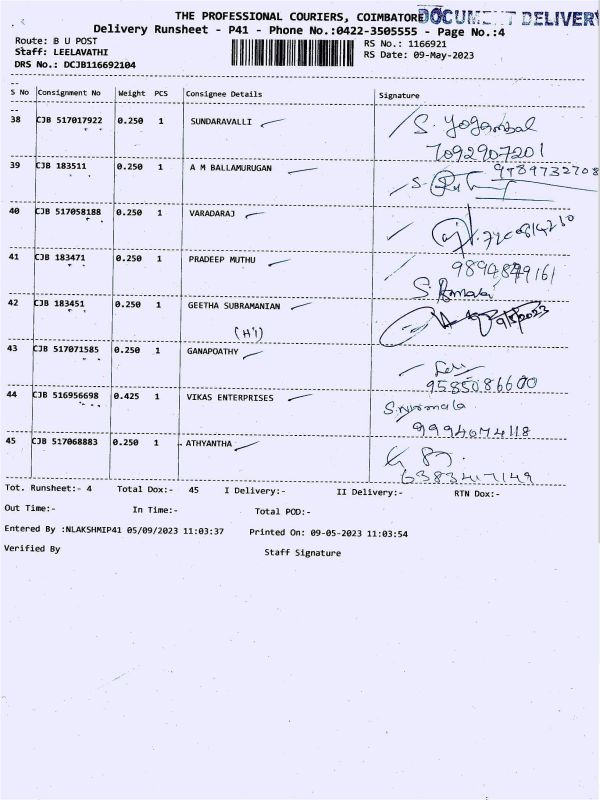 THE PROFESSIONAL COURIERS, COIMBATORE DOCUMENT DELIVERY
Delivery Runsheet - P41 - Phone No.:0422-3505555 - Page No.:4
Route: B U POST
RS No.: 1166921
Staff: LEELAVATHI
RS Date: 09-May-2023
DRS No.: DCJB116692104
S No Consignment No Weight PCS Consignee Details Signature
38 CJB 517017922 0.250 1 SUNDARAVALLI S. Yogambal
7092907201
39 CJB 183511 0.250 1 A M BALLAMURUGAN 9789732708
40 CJB 517058188 0.250 1 VARADARAJ
41 CJB 183471 0.250 1 PRADEEP MUTHU
42 CJB 183451 0.250 1 GEETHA SUBRAMANIAN 9/5/2023
(H1)
43 CJB 517071585 0.250 1 GANAPOATHY
9585086600
44 CJB 516956698 0.425 1 VIKAS ENTERPRISES S.nirmala
9994074118
45 CJB 517068883 0.250 1 ATHYANTHA
6383417149
Tot. Runsheet:- 4 Total Dox:- 45 I Delivery:- II Delivery:- RTN Dox:-
Out Time:- In Time:- Total POD:-
Entered By :NLAKSHMIP41 05/09/2023 11:03:37 Printed On: 09-05-2023 11:03:54
Verified By Staff Signature